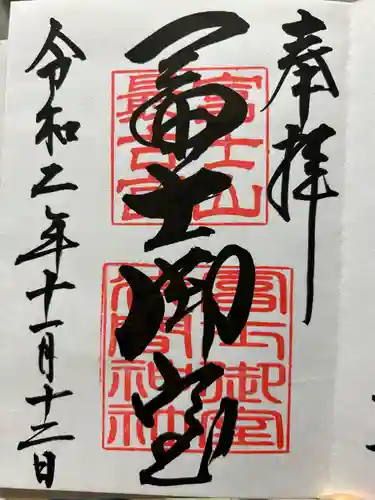 奉拝
冨士御室
令和二年十一月十二日
富士山
最古宮
富士御室
浅間神社